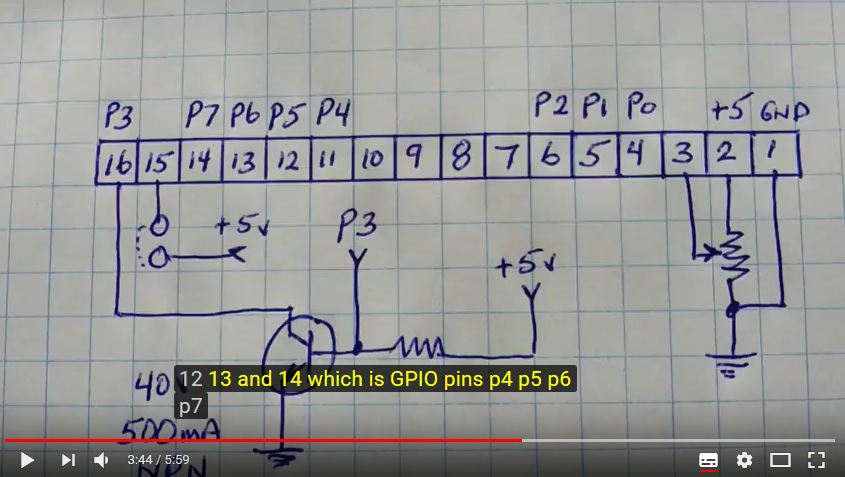 P3 P7 P6 P5 P4 P2 P1 P0 +5 GND
16 15 14 13 12 11 10 9 8 7 6 5 4 3 2 1
+5v P3
+5v
12 13 and 14 which is GPIO pins p4 p5 p6
p7
500mA
NPN
3:44 / 5:59